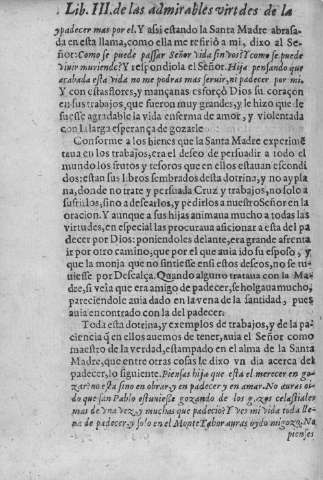 Lib. III. de las admirables virtdes de la
padecer mas por el. Y assi estando la Santa Madre abrasa-
da en esta llama, como ella me refirió a mi, dixo al Se-
ñor: Como se puede passar Señor vida sin vos? Y como se puede
viuir muriendo? Y respondiola el Señor. Hija pensando que
acabada esta vida no me podras mas seruir, ni padecer por mi.
Y con estas flores, y mançanas esforçò Dios su coraçon
en sus trabajos, que fueron muy grandes, y le hizo que le
fuesse agradable la vida enferma de amor, y violentada
con la larga esperança de gozarle.
Conforme a los bienes que la Santa Madre experimē
taua en los trabajos, era el desseo de persuadir a todo el
mundo los frutos y tesoros que en ellos estauan escondi
dos: estan sus libros sembrados desta dotrina, y no ay pla
na, donde no trate y persuada Cruz y trabajos, no solo a
sufrirlos, sino a dessearlos, y pedirlos a nuestro Señor en la
oracion. Y aunque a sus hijas animaua mucho a todas las
virtudes, en especial las procuraua aficionar a esta del pa
decer por Dios: poniendoles delante, era grande afrenta
ir por otro camino, que por el que auia ido su esposo, y
que la monja que no sintiesse en si estos desseos, no se tu
uiesse por Descalça. Quando alguno trataua con la Ma-
dre, si veia que era amigo de padecer, se holgaua mucho,
pareciendole auia dado en la vena de la santidad, pues
auia encontrado con la del padecer.
Toda esta dotrina, y exemplos de trabajos, y de la pa-
ciencia q̃ en ellos auemos de tener, auia el Señor como
maestro de la verdad, estampado en el alma de la Santa
Madre, que entre otras cosas le dixo vn dia acerca del
padecer, lo siguiente. Piensas hija que esta el merecer en go-
zar? no esta sino en obrar, y en padecer y en amar. No auras oi-
do que san Pablo estuuiesse gozando de los gozos celestiales
mas de vna vez, y muchas que padecio? Y ves mi vida toda lle-
na de padecer, y solo en el Monte Tabor auras oydo mi gozo. No
pienses